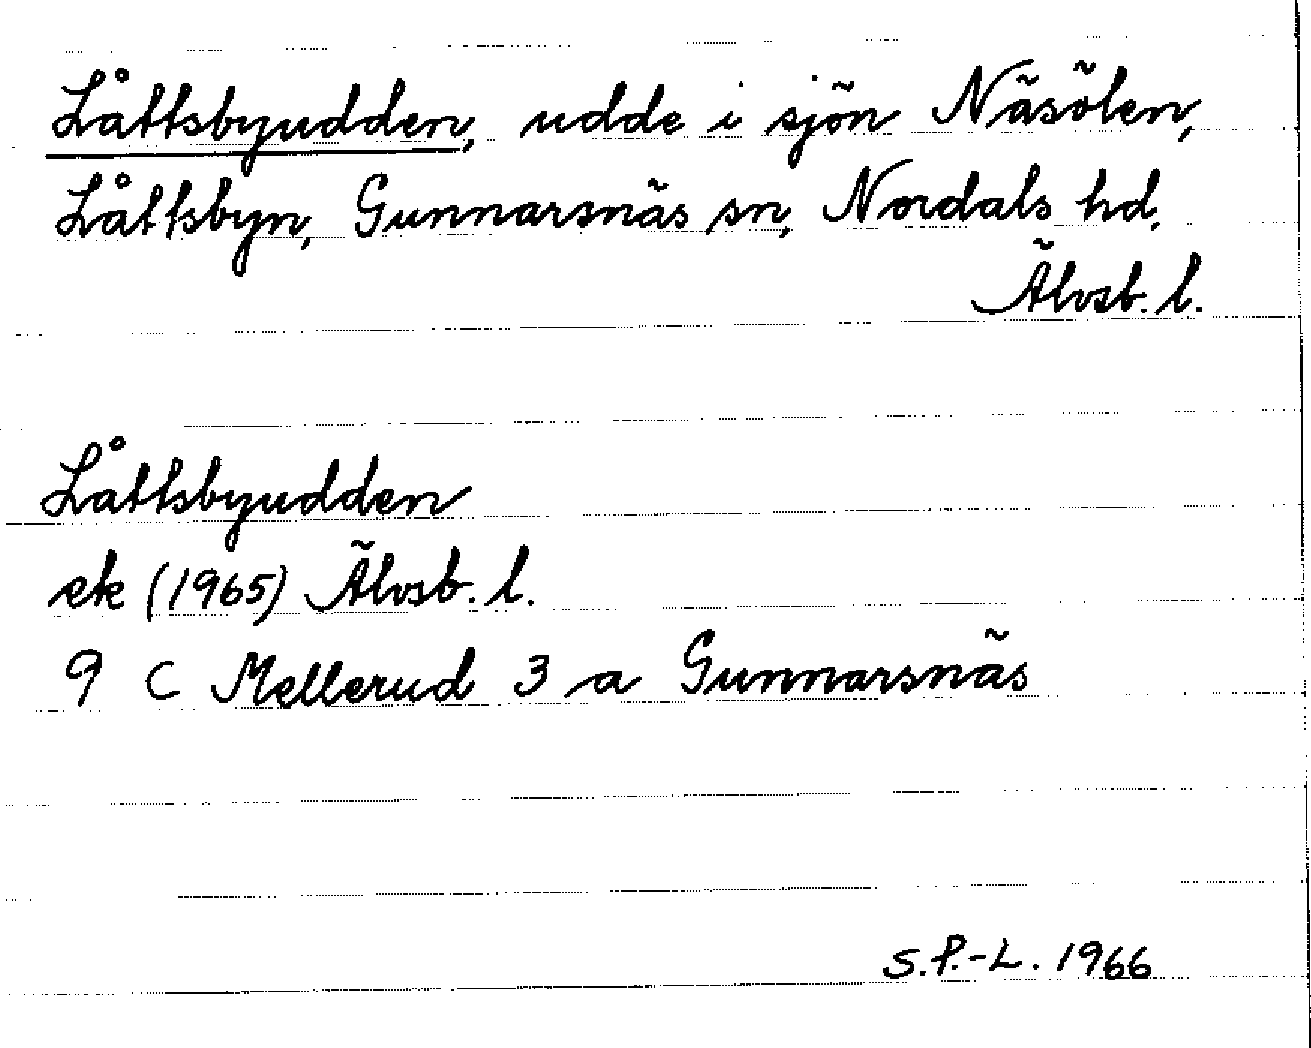 Låttsbyudden, udde i sjön Näsölen,
Låttsbyn, Gunnarsnäs sn, Nordals hd.
Älvsb. l.
Låttsbyudden
ek (1965) Älvsb. l.
9 C Mellerud 3 a Gunnarsnäs
S.P.-L. 1966